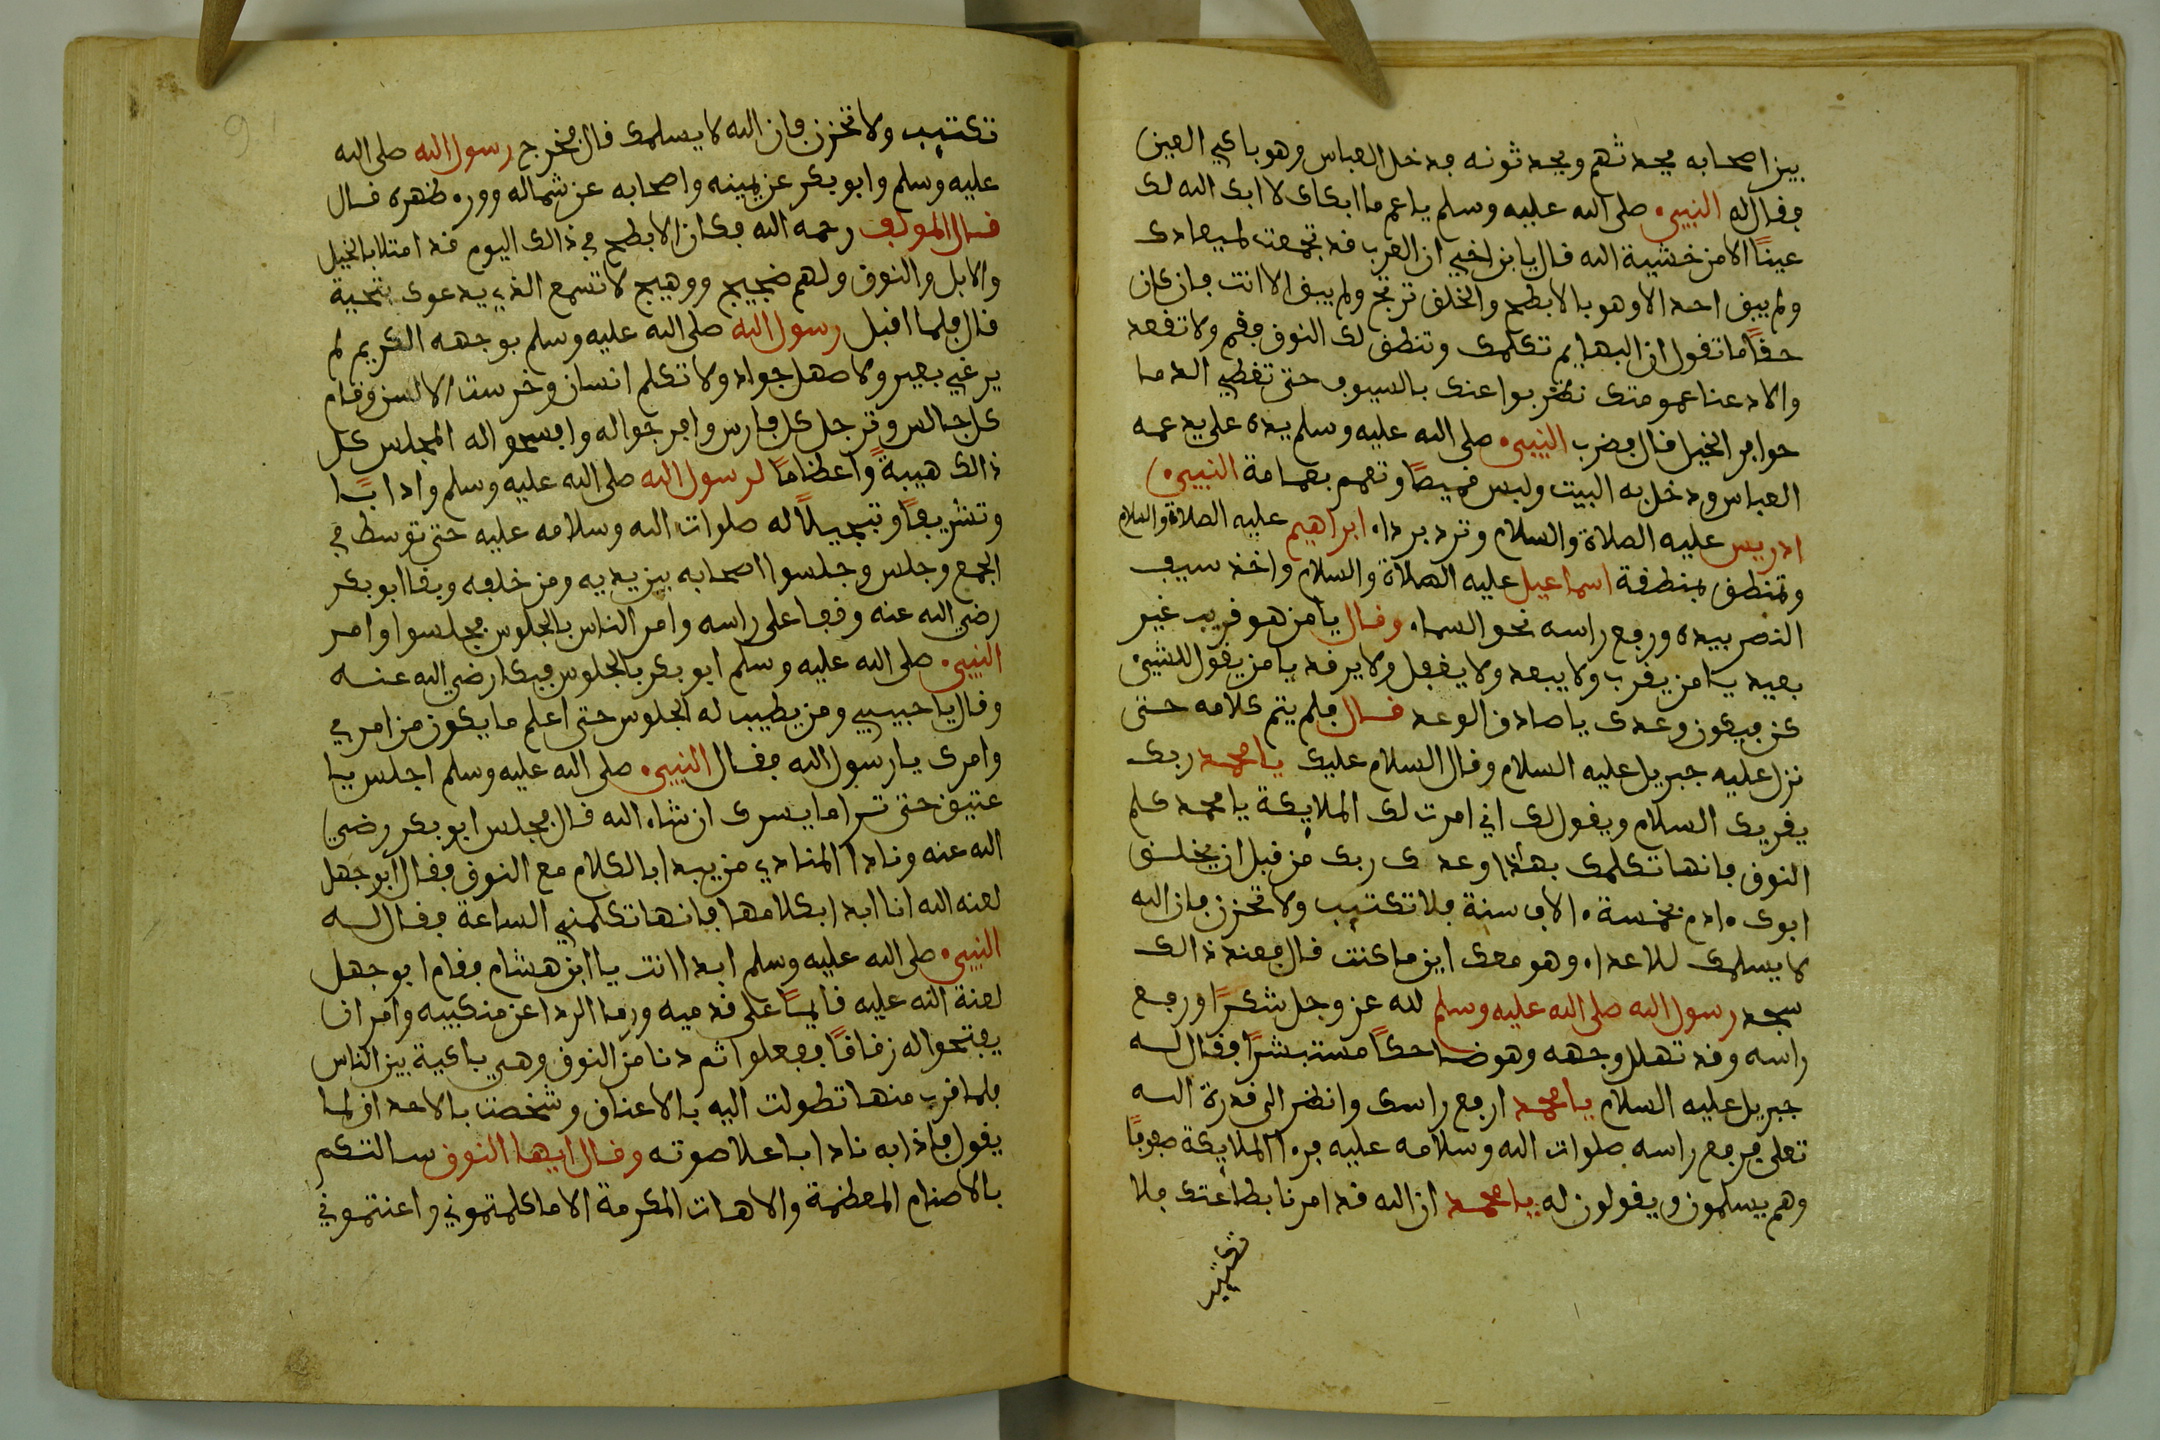 بين اصحابه يحدثهم ويحدثونه فدخل العباس وهو باكي العين
فقال له النبيء صلى الله عليه وسلم يا عم ما ابكاك لا ابكى الله لك
عينًا الا من خشية الله قال يا بن اخي ان العرب قد تجمعت لميعادك
ولم يبق احد الا وهو بالابطح والخلق ترتج ولم يبق الا انت فان كان
حقًا ما تقول ان البهايم تكلمك وتنطق لك النوق فقم ولا تقعد
والا دعنا عمومتك نضربوا عنك بالسيوف حتى تغطي الدما
حوافر الخيل قال فضرب النبيء صلى الله عليه وسلم يده على يد عمه
العباس ودخل به البيت ولبس قميصًا وتعمم بعمامة النبيء
ادريس عليه الصلاة والسلام وتردا برداء ابراهيم عليه الصلاة والسلام
وتمنطق بمنطقة اسماعيل عليه الصلاة والسلام واخذ سيف
النصر بيده ورفع راسه نحو السماء وقال يا من هو قريب غير
بعيد يا من يقرب ولا يبعد ولا يغفل ولا يرقد يا من يقول للشيئ
كن فيكون وعدك يا صادق الوعد قال فلم يتم كلامه حتى
نزل عليه جبريل عليه السلام وقال السلام عليك يا محمد ربك
يقريك السلام ويقول لك اني امرت لك الملايكة يا محمد كلم
النوق فانها تكلمك بهذا وعدك ربك من قبل ان يخلق
ابوك ءادم بخمسة ءالاف سنة فلا تكتيب ولا تحزن فان الله
لا يسلمك للاعداء وهو معك اين ما كنت قال فعند ذالك
سجد رسول الله صلى الله عليه وسلم لله عز وجل شكرًا ورفع
راسه وقد تهلل وجهه وهو ضاحكًا مستبشرًا فقال له
جبريل عليه السلام يا محمد ارفع راسك وانظر الى قدرة الله
تعلى فرفع راسه صلوات الله وسلامه عليه فرءا الملايكة صفوفًا
وهم يسلمون ويقولون له يا محمد ان الله قد امرنا بطاعتك فلا
تكتيب
تكتيب ولا تحزن فان الله لا يسلمك قال فخرج رسول الله صلى الله
عليه وسلم وابو بكر عن يمينه واصحابه عن شماله ووره ظهره قال
قال المولف رحمه الله فكان الابطح في ذالك اليوم قد امتلا بالخيل
والابل والنوق ولهم ضجيج ووهيج لا تسمع الذي يدعوك بتحية
قال فلما اقبل رسول الله صلى الله عليه وسلم بوجهه الكريم لم
يرغي بعير ولا صهل جواد ولا تكلم انسان وخرست الالسن وقام
كل جالس وترجل كل فارس وافرجوا له وافسحوا له المجلس كل
ذالك هيبةً واعظامًا لرسول الله صلى الله عليه وسلم وادابًا
وتشريفًا وتبجيلاً له صلوات الله وسلامه عليه حتى توسط في
الجمع وجلس وجلسوا اصحابه بين يديه ومن خلفه وبقا ابو بكر
رضي الله عنه وقفا على راسه وامر الناس بالجلوس فجلسوا وامر
النبيء صلى الله عليه وسلم ابو بكر بالجلوس فبكا رضي الله عنه
وقال يا حبيبي ومن يطيب له الجلوس حتى اعلم ما يكون من امري
وامرك يا رسول الله فقال النبيء صلى الله عليه وسلم اجلس يا
عتيق حتى ترا ما يسرك ان شاء الله قال فجلس ابو بكر رضي
الله عنه ونادا المنادي من يبدا بالكلام مع النوق فقال ابو جهل
لعنه الله انا ابدا بكلامها فانها تكلمني الساعة فقال له
النبيء صلى الله عليه وسلم ابدا انت يا ابن هشام فقام ابو جهل
لعنة الله عليه قايمًا على قدميه ورما الردا عن منكبيه وامر ان
يفتحوا له زقاقًا ففعلوا ثم دنا من النوق وهي باكية بين الناس
فلما قرب منها تطولت اليه بالاعناق وشخصت بالاحداق لما
يقول فاذا به نادا باعلا صوته وقال ايها النوق سالتكم
بالاصنام المعظمة والالاهات المكرمة الا ما كلمتموني واعنتموني